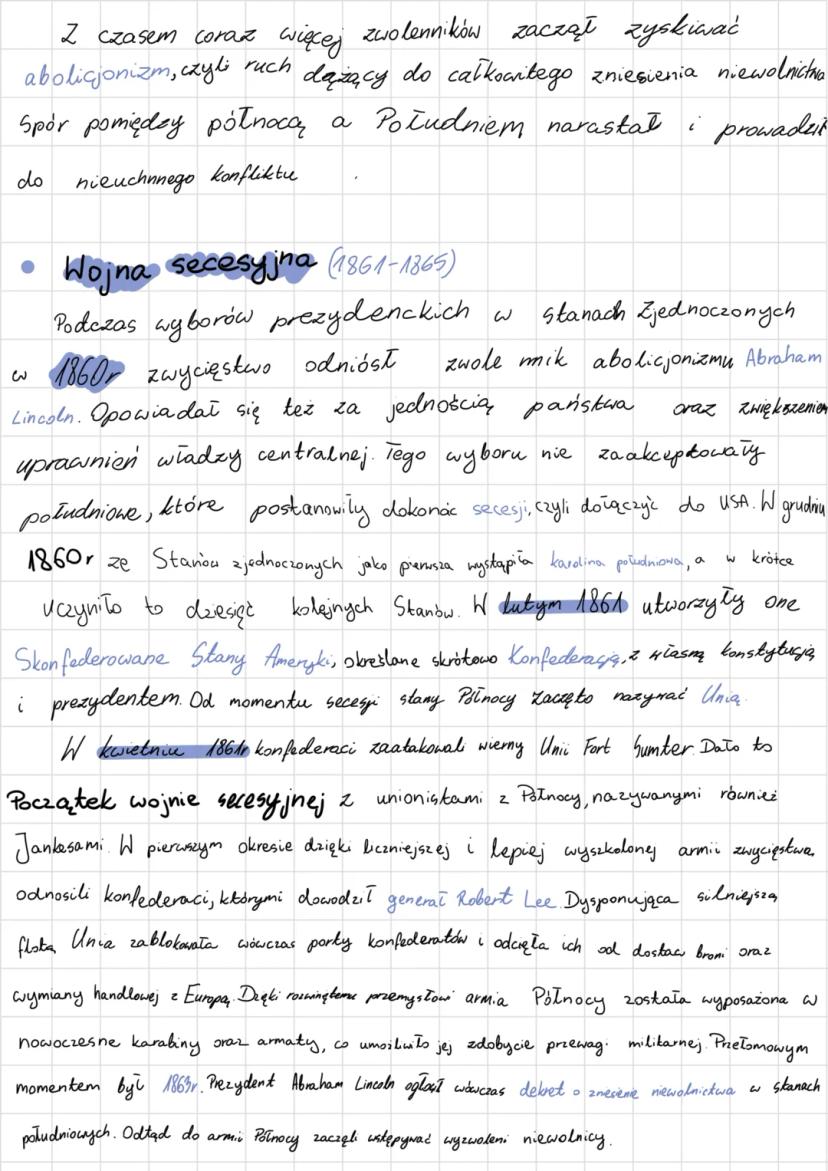 Z czasem coraz więcej zwolenników zaczął zyskiwać
abolicjonizm, czyli ruch dążący do całkowitego zniesienia niewolnictwa
Spór pomiędzy północą a Południem narastał i prowadził
do nieuchnnego konfliktu .
• Wojna secesyjna (1861-1865)
Podczas wyborów prezydenckich w stanach Zjednoczonych
w 1860r zwycięstwo odniósł zwole nnik abolicjonizmu Abraham
Lincoln. Opowiadał się też za jednością państwa oraz zwiększeniem
uprawnień władzy centralnej. Tego wyboru nie zaakceptowały
południowe, które postanowiły dokonać secesji, czyli dołączyć do USA. W grudniu
1860r ze Stanów zjednoczonych jako pierwsza wystąpiła karolina południowa, a w krótce
uczyniło to dziesięć kolejnych Stanów. W lutym 1861 utworzyły one
Skonfederowane Stany Ameryki, określane skrótowo Konfederacją, z własną konstytucją
i prezydentem. Od momentu secesji stany Północy zaczęto nazywać Unią.
W kwietniu 1861r konfederaci zaatakowali wierny Unii Fort Sumter. Dało to
Początek wojnie secesyjnej z unionistami z Północy, nazywanymi również
Jankesami. W pierwszym okresie dzięki liczniejszej i lepiej wyszkolonej armii zwycięstwa
odnosili konfederaci, którymi dowodził generał Robert Lee. Dysponująca silniejszą
flotą Unia zablokowała wówczas porty konfederatów i odcięła ich od dostaw broni oraz
wymiany handlowej z Europą. Dzięki rozwiniętemu przemysłowi armia Północy została wyposażona w
nowoczesne karabiny oraz armaty, co umożliwiło jej zdobycie przewagi militarnej. Przełomowym
momentem był 1863r. Prezydent Abraham Lincoln ogłosił wówczas dekret o zniesienie niewolnictwa w stanach
południowych. Odtąd do armii Północy zaczęli wstępywać wyzwoleni niewolnicy.